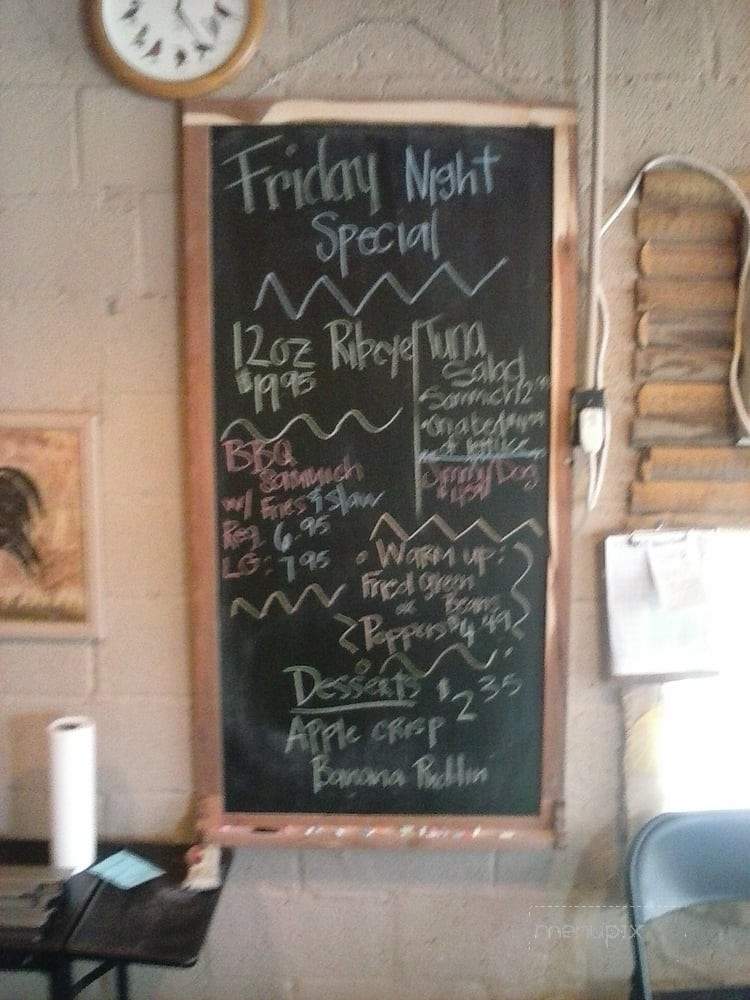 Friday Night
Special
12oz Ribeye
$19.95
Tuna
Salad
Sammich
On a bed
of lettuce
BBQ
Sammich
w/ Fries & slaw
Reg. 6.95
LG: 7.95
Dog
Warm up:
Fried green
or Beans
Peppers $4.49
Desserts $2.35
Apple crisp
Banana Puddin
menupix